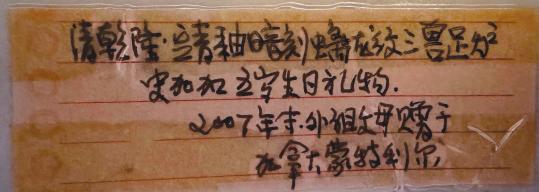 清乾隆·豆青釉暗刻螭龙纹三兽足炉
史加加五岁生日礼物.
2007年末.外祖父母赠于
加拿大蒙特利尔